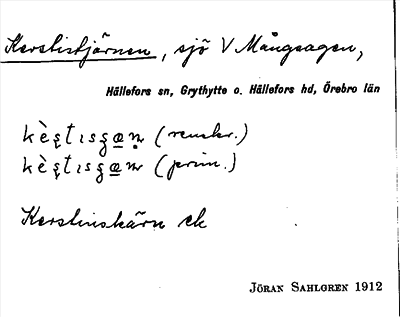 Kerstistjärnen, sjö V Mångsagen,
Hällefors sn, Grythytte o. Hällefors hd, Örebro län
(renskr.)
(prim.)
Kerstinskärn ek
JÖRAN SAHLGREN 1912